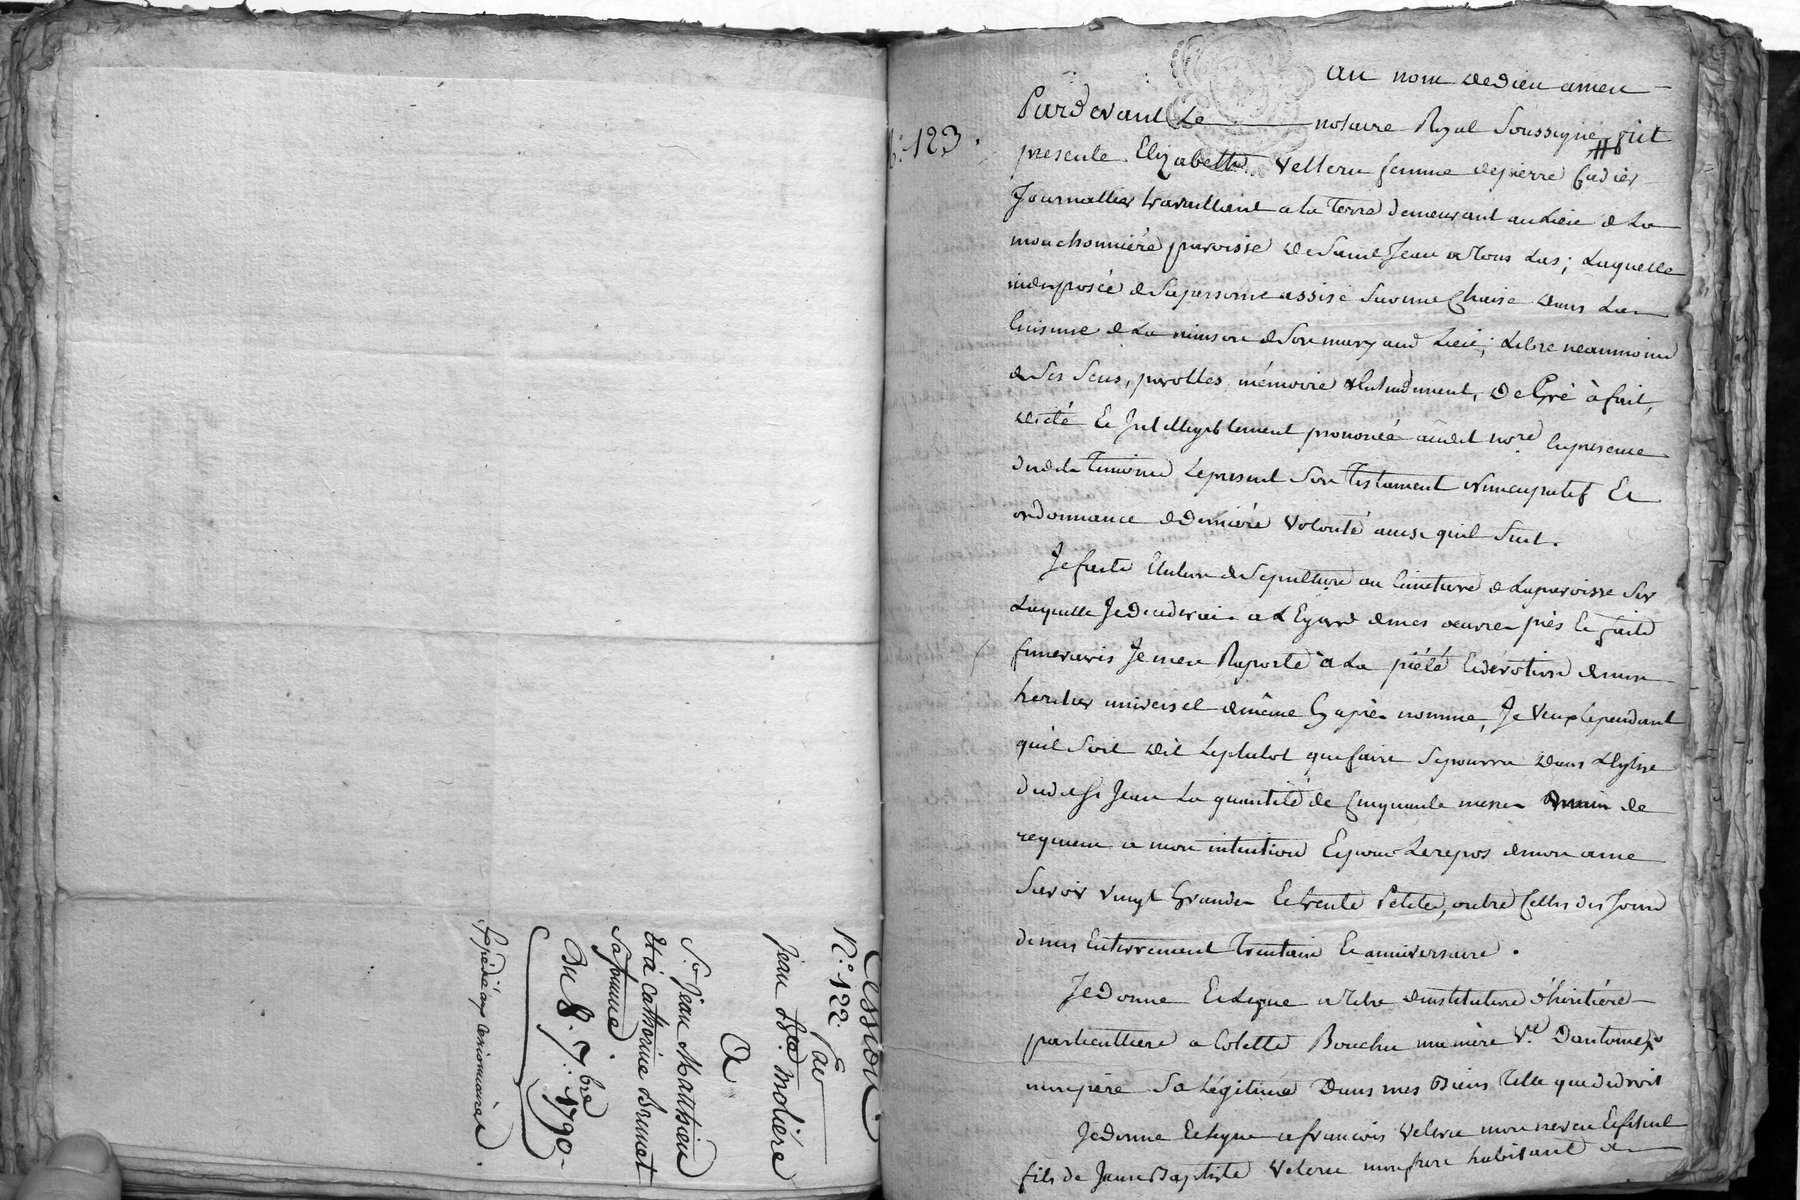 Cession
N.° 122.
par
Jean Bte. molière
A
Sr. Jean Matthieu
et à Catherine Brunet
sa femme.
Du 8. 7bre 1790.
Expedié aux Cessionnaires.
N.° 123.
au nom de dieu amen
Pardevant Le notaire Royal Soussigné fut
presente Elizabeth Velleru femme de pierre Cadier
Journallier travaillant a la Terre demeurant au Lieu de La
mouchonnière paroisse de Saint Jean a Tous Las; Laquelle
indisposée de Sa personne assise Sur une Chaise dans La
Cuisine de La maison de Son mary aud Lieu; Libre neanmoins
de Ses Sens, parolles, mémoire & Entendement, De Gré à fait,
dicté Et Intelligiblement prononcé audit nore. En presence
desdits Temoins Le present Son Testament Nuncupatif Et
ordonnance de Derniere Volonté ainsi quil Suit.
Je fais Election de Sepulture au Cimetiere de La paroisse Sur
Laquelle Je Decederai. a L'Egard de mes oeuvres pies Et frais
funeraires Je men Raporte à La piété Et devotion de mon
heritier universel de même Cy après nommé, Je Veux Cependant
quil Soit dit Le plutot que faire Se pourra dans L'Eglise
dud St Jean La quantité de Cinquante messes de
requiem a mon intention Et pour Le repos de mon ame
Savoir vingt Grandes Et trente Petites, outre Celles des Jours
de mes Enterrement Trentain Et anniversaire.
Je Donne Et Legue a Titre d'institution d'héritiére
particulliere a Colette Bouchu ma mère Ve. D'antoine
mon père Sa Légitime Dans mes Biens Telle que de droit
Je donne Et Legue a francois Veleru mon neveu Et filleul
fils de Jean Baptiste Veleru mon frere habitant de